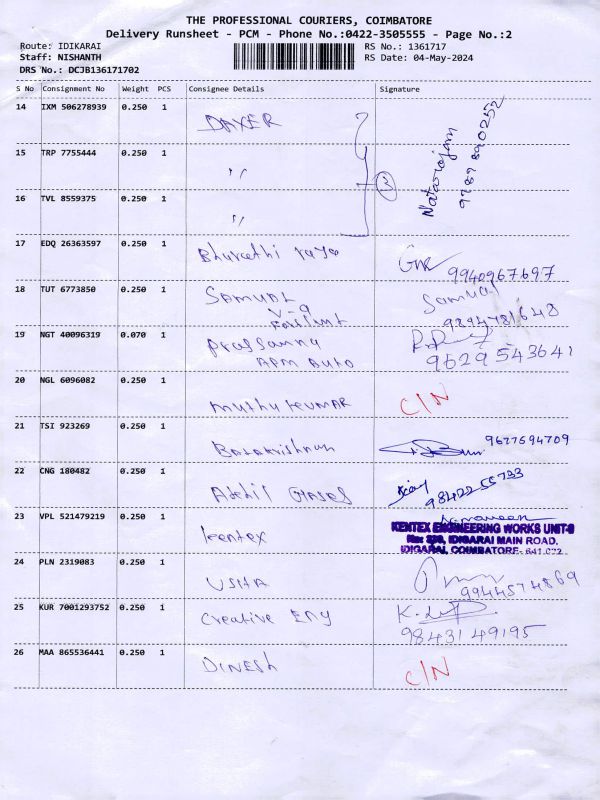 THE PROFESSIONAL COURIERS, COIMBATORE
Delivery Runsheet - PCM - Phone No.:0422-3505555 - Page No.:2
Route: IDIKARAI RS No.: 1361717
Staff: NISHANTH RS Date: 04-May-2024
DRS No.: DCJB136171702
S No Consignment No Weight PCS Consignee Details Signature
14 IXM 506278939 0.250 1
Natarajan
9787890252
15 TRP 7755444 0.250 1 "
16 TVL 8559375 0.250 1 "
17 EDQ 26363597 0.250 1 Bharathi raja
9940967697
18 TUT 6773850 0.250 1 SAMUAL Samual
V-9
9894781648
19 NGT 40096319 0.070 1 Prassanna
APM AUTO 9629543641
20 NGL 6096082 0.250 1 muthu kumar C/N
21 TSI 923269 0.250 1 Balakrishnan 9677594709
22 CNG 180482 0.250 1 GASES
9842255733
23 VPL 521479219 0.250 1 Kentex
KENTEX ENGINEERING WORKS UNIT-II
IDIGARAI MAIN ROAD,
IDIGARAI, COIMBATORE- 641 022
24 PLN 2319083 0.250 1 USHA
9944574869
25 KUR 7001293752 0.250 1 Creative Eng
9843149195
26 MAA 865536441 0.250 1 DINESH C/N